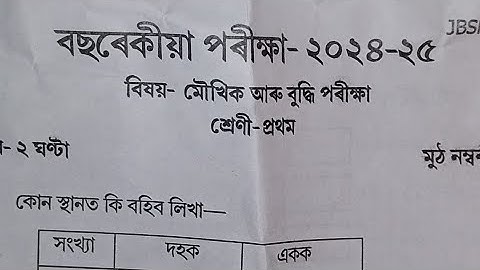 JBS
বছৰেকীয়া পৰীক্ষা- ২০২৪-২৫
বিষয়- মৌখিক আৰু বুদ্ধি পৰীক্ষা
শ্ৰেণী-প্ৰথম
- ২ ঘণ্টা
মুঠ নম্বৰ
কোন স্থানত কি বহিব লিখা—
সংখ্যা দহক একক